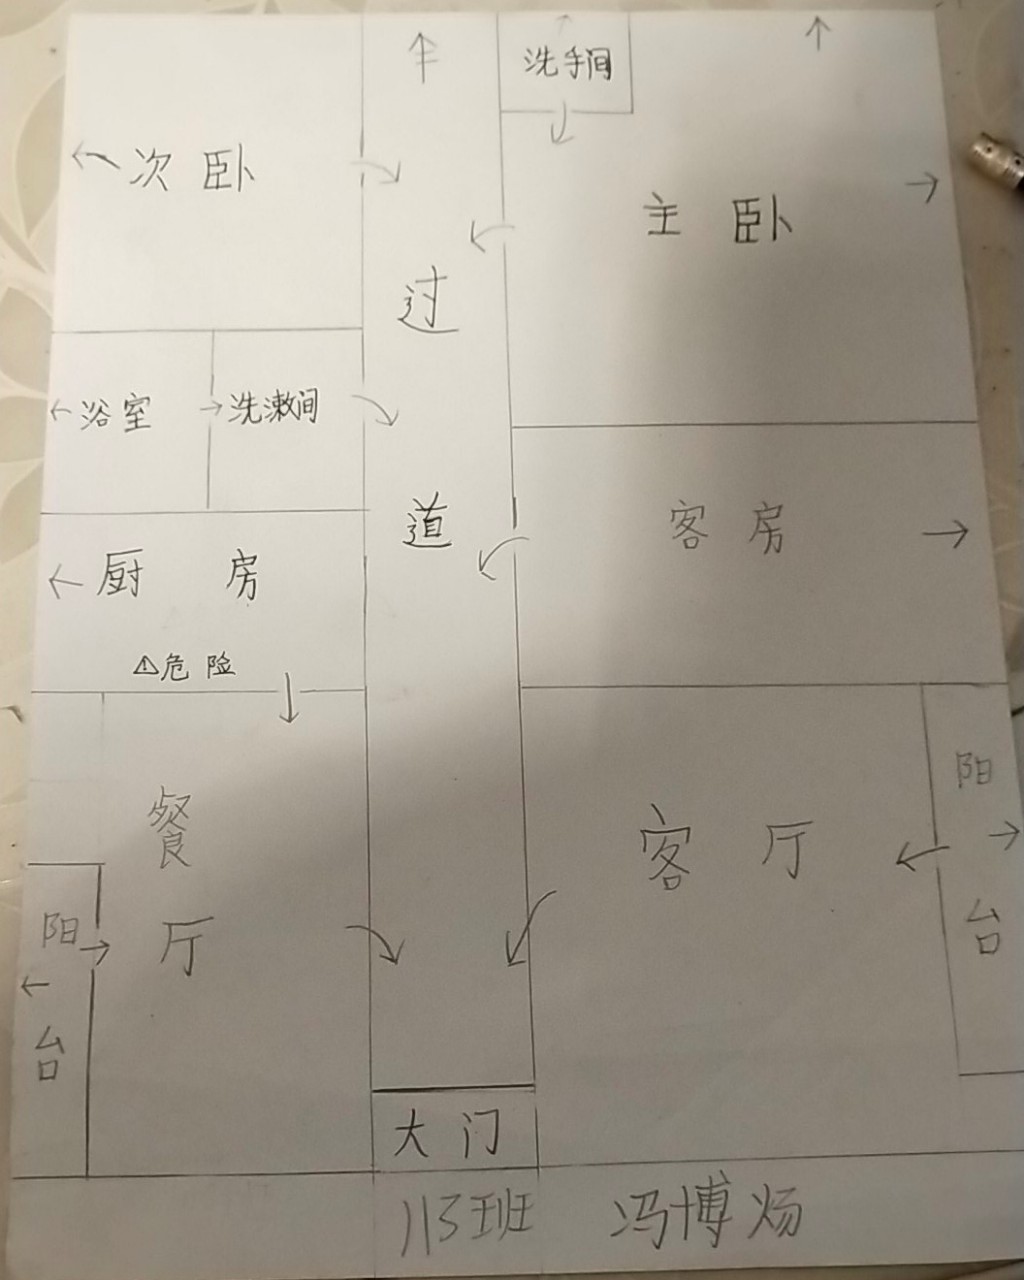 洗手间
次卧
主卧
过道
浴室
洗漱间
厨房
⚠危险
客房
餐厅
客厅
阳台
阳台
大门
113班 冯博炀